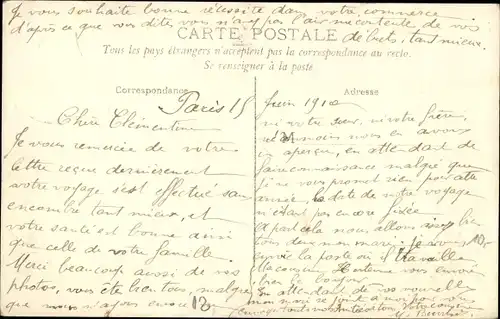 Je vous souhaite bonne réussite dans votre commerce
d'après ce que vous dite, vous n'avez pas l'air mécontente de vos
CARTE POSTALE
débuts, tant mieux.
Tous les pays étrangers n'acceptent pas la correspondance au recto.
Se renseigner à la poste
Correspondance
Adresse
Paris 15 Juin 1912
Chère Clémentine
Je vous remercie de votre
lettre reçue dernièrement
votre voyage s'est effectué sans
encombre tant mieux, et
votre santé est bonne ainsi
que celle de votre famille.
Merci beaucoup aussi de vos
photos, vous ête bien tous, malgré
que nous n'ayons encore
ni votre sœur, ni votre frère,
néanmoins nous en avons
un aperçu, en attendant de
faire connaissance malgré que
je ne vous promet rien pour cette
année, la date de notre voyage
n'étant pas encore fixée.
A part cela nous allons assez bien
tous deux mon mari
la poste où il travaille
Ma cousine Hortense vous envoie
bien le bonjour.
En attendant de vos nouvelles
mon mari se joint à moi pour vous
13
10